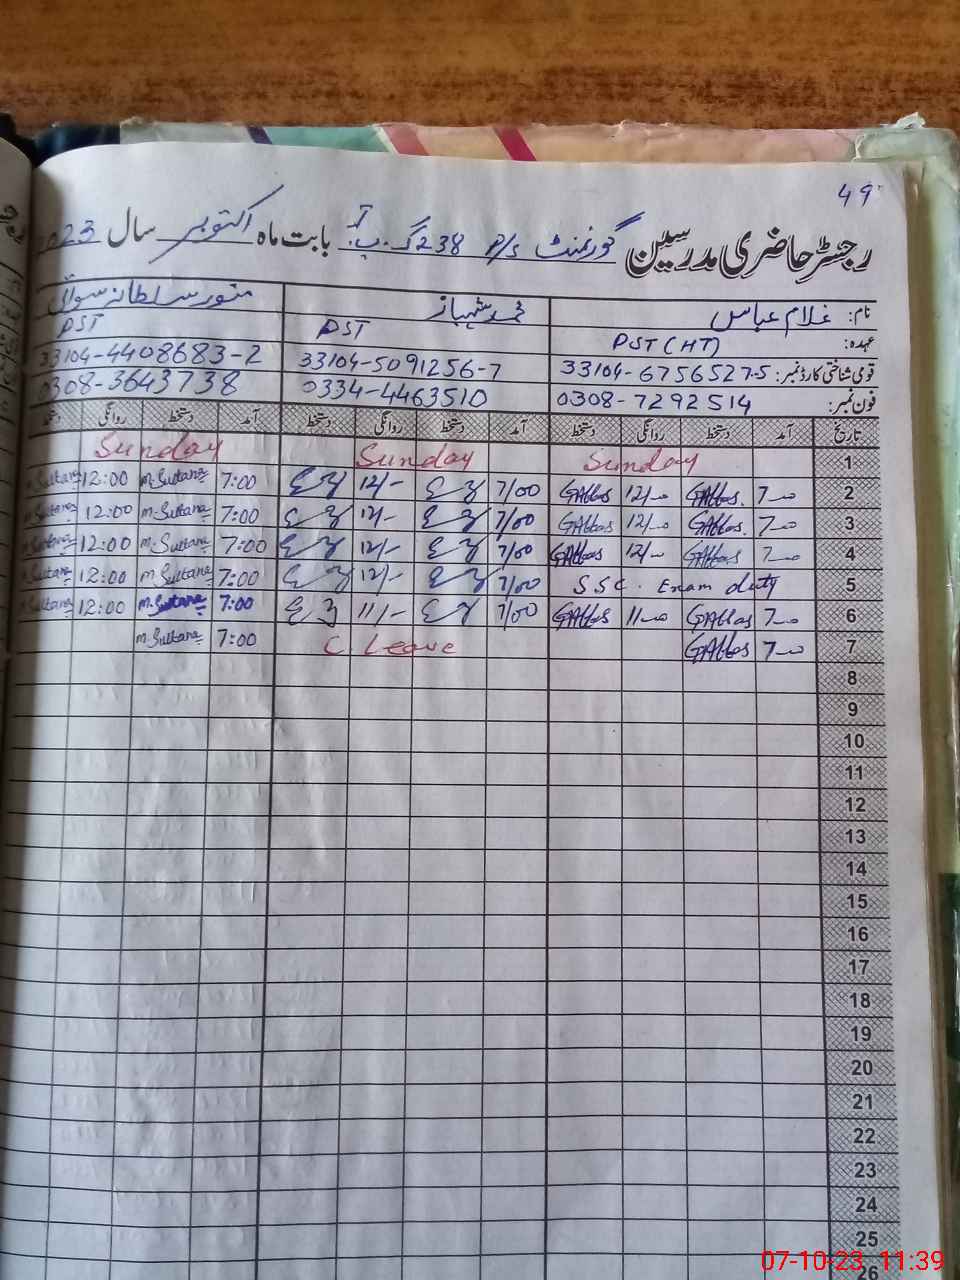 49
رجسٹر حاضری مدرسین گورنمنٹ P/S 238 گ۔ب۔ بابت ماہ اکتوبر سال 2023
نام: غلام عباس محمد شہباز منور سلطانہ
عہدہ: PST (HT) PST PST
قومی شناختی کارڈ نمبر: 33104-6756527-5 33104-5091256-7 33104-4408683-2
فون نمبر: 0308-7292514 0334-4463510 0308-3643738
تاریخ آمد دستخط روانگی دستخط آمد دستخط روانگی دستخط آمد دستخط روانگی دستخط
1 Sunday Sunday Sunday
2 7-00 GAbbas 12/-00 GAbbas 7/00 12/- 7:00 M.Sultana 12:00 M.Sultana
3 7-00 GAbbas 12/-00 GAbbas 7/00 12/- 7:00 M.Sultana 12:00 M.Sultana
4 7-00 GAbbas 12/-00 GAbbas 7/00 12/- 7:00 M.Sultana 12:00 M.Sultana
5 SSC. Exam duty 7/00 12/- 7:00 M.Sultana 12:00 M.Sultana
6 7-00 GAbbas 11-00 GAbbas 7/00 11/- 7:00 M.Sultana 12:00 M.Sultana
7 7-00 GAbbas C. Leave 7:00 M.Sultana
8
9
10
11
12
13
14
15
16
17
18
19
20
21
22
23
24
25
26
07-10-23 11:39